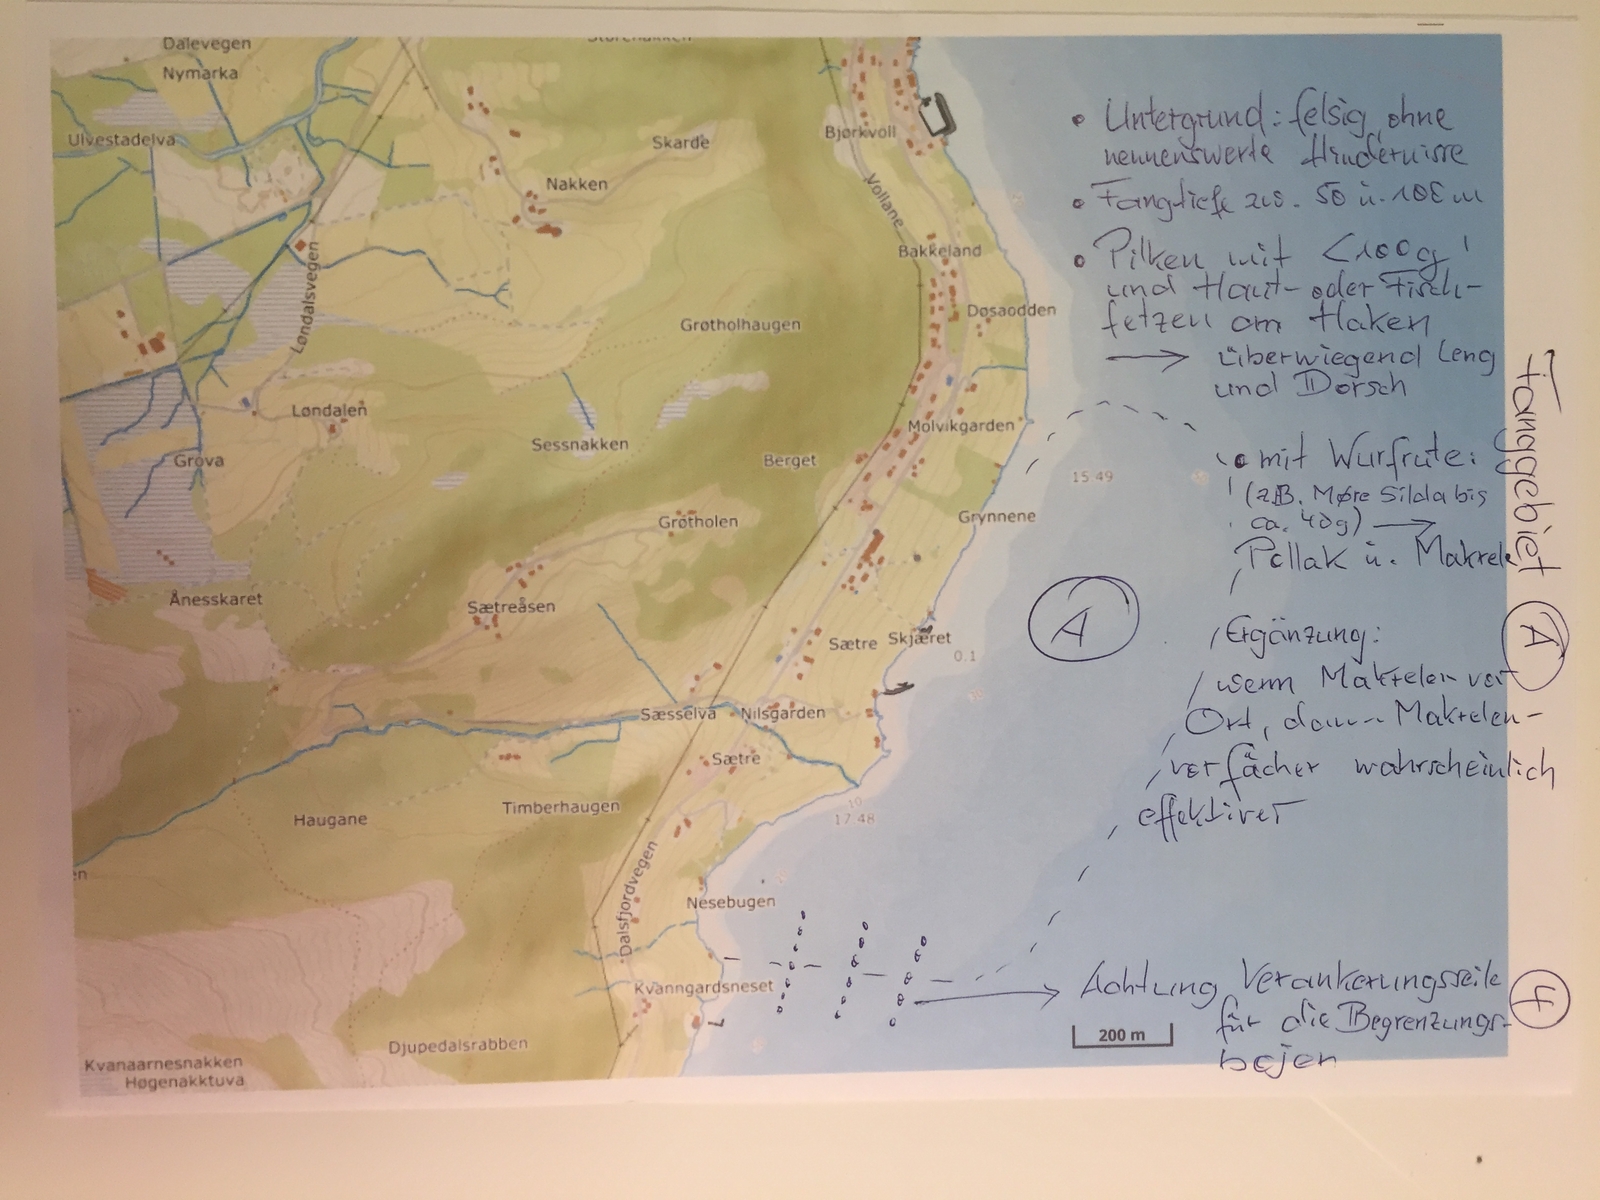 Dalevegen
Nymarka
Ulvestadelva
Skarde
Nakken
Bjørkvoll
Vollane
Bakkeland
Døsaodden
Løndalsvegen
Grøtholhaugen
Løndalen
Sessnakken
Molvikgarden
Grova
Berget
15 49
Grøtholen
Grynnene
Ånesskaret
Sætreåsen
Sætre
Skjæret
0.1
Sæsselva
Nilsgarden
Sætre
Timberhaugen
Haugane
10
17 48
Dalsfjordvegen
Nesebugen
Kvanngardsneset
Djupedalsrabben
Kvanaarnesnakken
Høgenakktuva
200 m
• Untergrund: felsig, ohne
nennenswerte Hindernisse
• Fangtiefe zw. 50 u. 100 m
• Pilken mit <100g!
und Haut- oder Fisch-
fetzen am Haken
→ überwiegend Leng
und Dorsch
• mit Wurfrute:
(z.B. Møre Silda bis
ca. 40g) →
Pollak u. Makrele
Ergänzung:
wenn Makrelen vor
Ort, dann Makrelen-
verfächer wahrscheinlich
effektiver
Achtung Verankerungsseile
für die Begrenzungs-
bojen
A
Fanggebiet
A
4